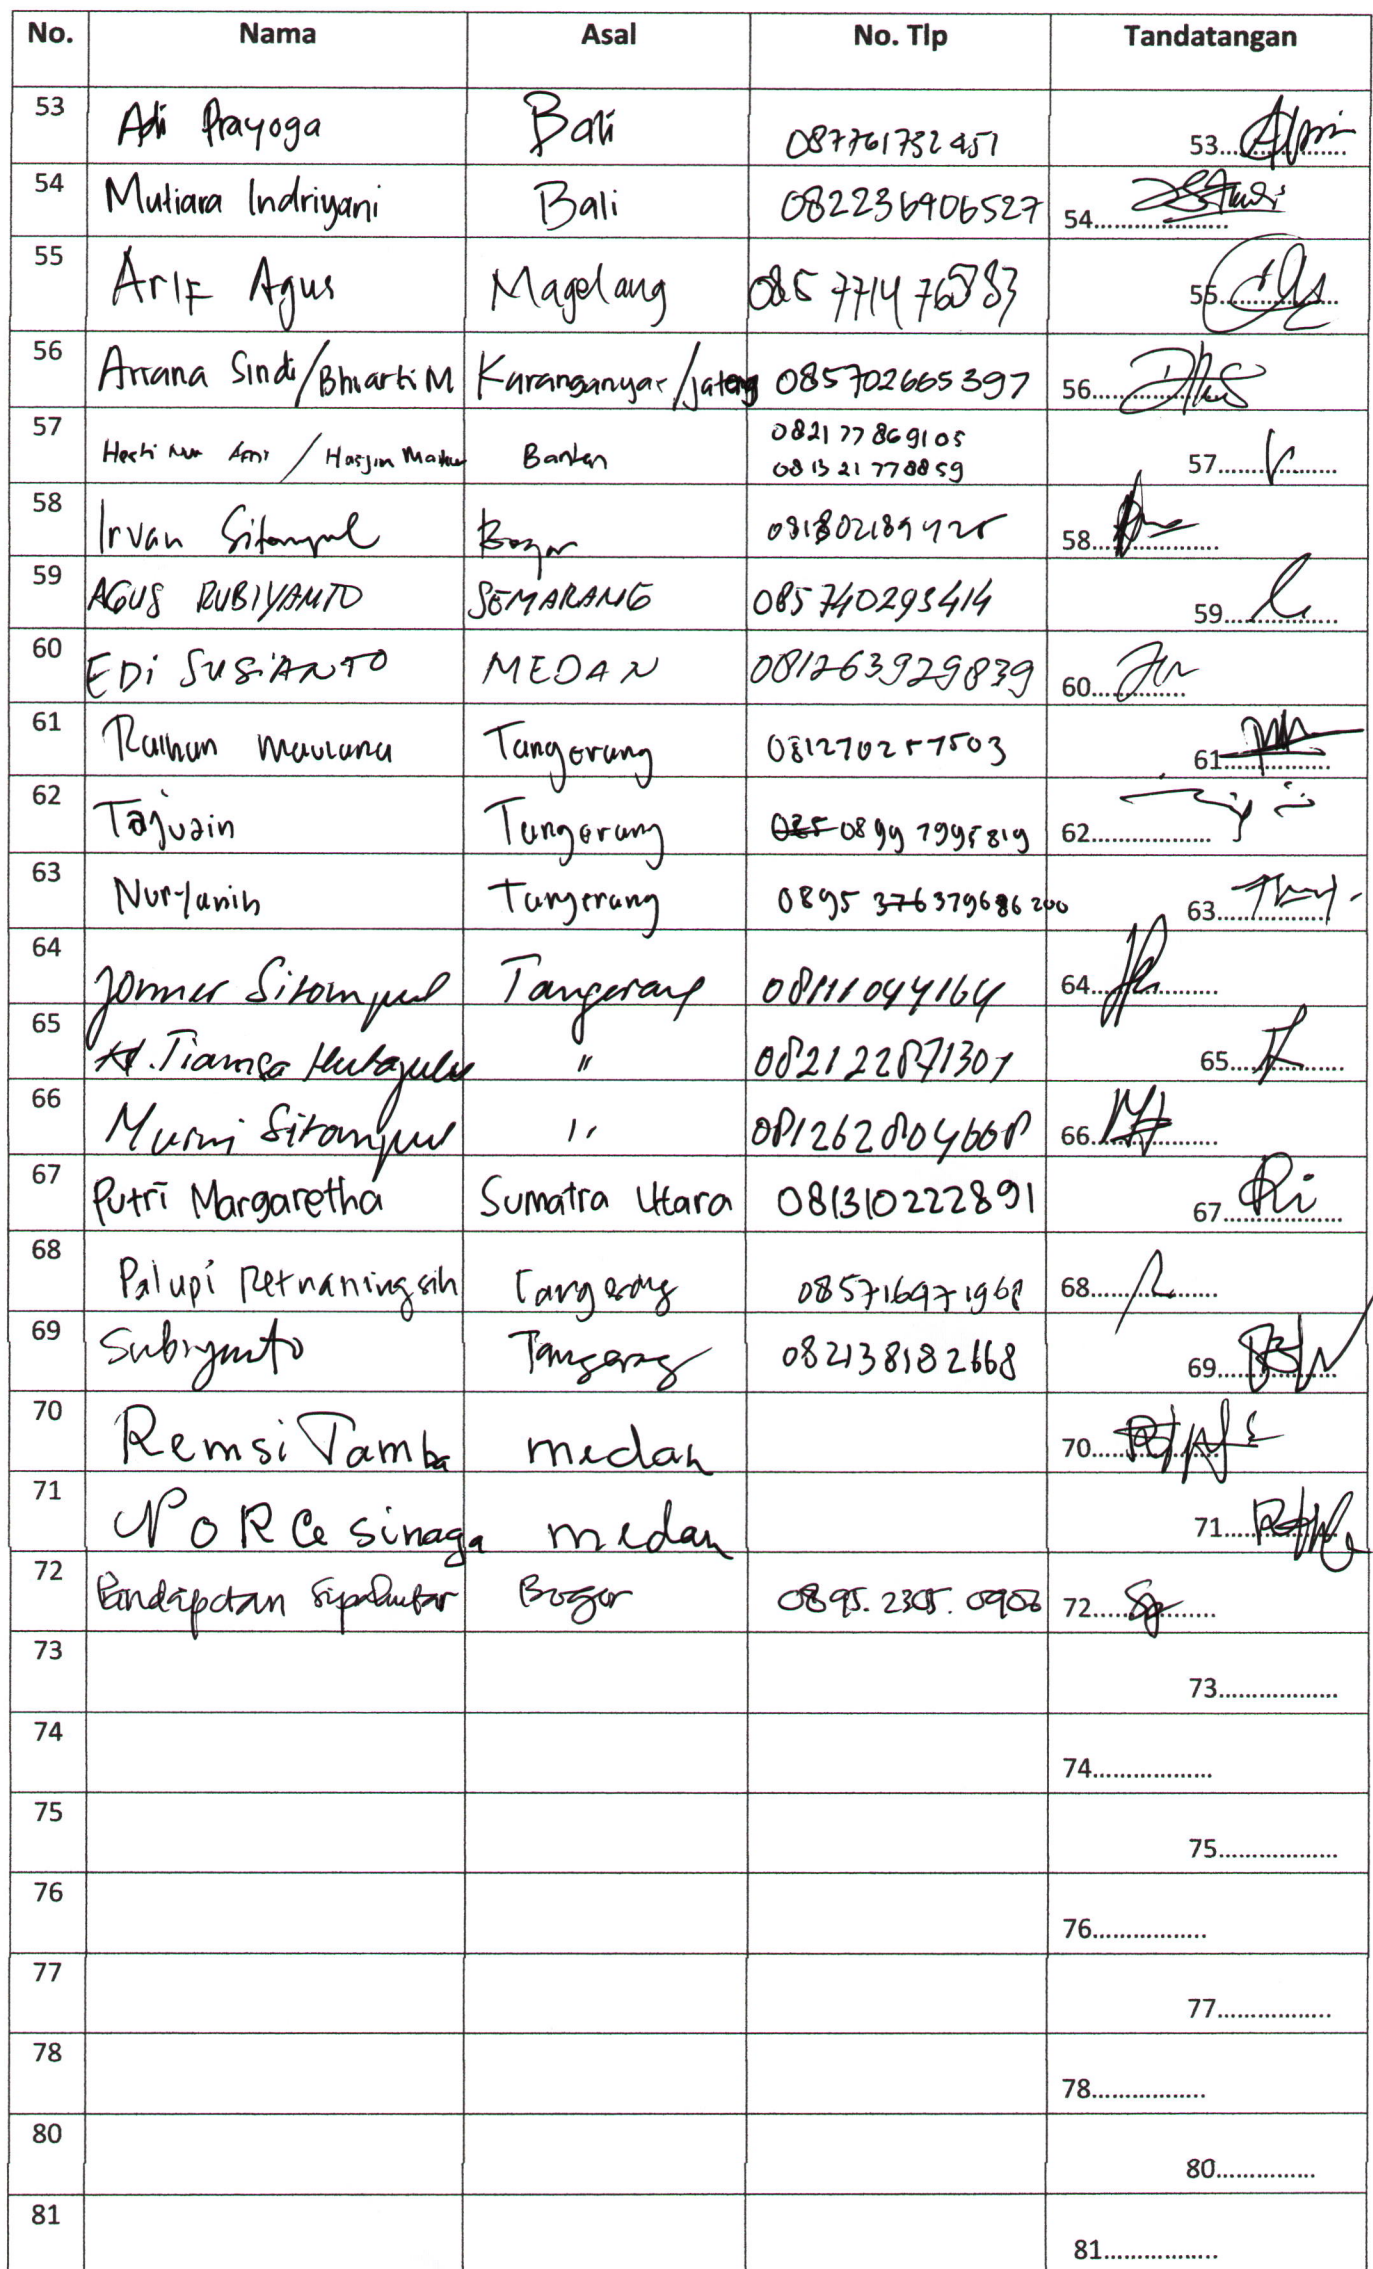 No. Nama Asal No. Tlp Tandatangan
53 Adi Prayoga Bali 087761732451 53..................
54 Mutiara Indriyani Bali 082236906527 54....................
55 Arif Agus Magelang 55..................
56 Arrana Sindi/Bhiarti M Karanganyar/Jateng 085702665397 56..................
57 Banten 082177869105 57..................
081321778859
58 Irvan Sitompul Bogor 58..................
59 AGUS RUBIYANTO SEMARANG 085740293414 59..................
60 EDi SUSiANTO MEDAN 081263929839 60..................
61 Raihan Maulana Tangerang 081270257503 61..................
62 Tajuzin Tangerang 0899 7995819 62..................
63 Nuryanih Tangerang 0895 63..................
64 Jonner Sitompul Tangerang 08111044164 64..................
65 Tiamsa Hutajulu " 082122871307 65..................
66 Murni Sitompul " 081262804668 66..................
67 Putri Margaretha Sumatra Utara 081310222891 67..................
68 Palupi Retnaningsih Tangerang 085716971968 68..................
69 Subiyanto Tangerang 082138182668 69..................
70 Remsi Tamba medan 70..................
71 NORCe sinaga medan 71..................
72 Pandapotan Sipahutar Bogor 0895.2305.0908 72..................
73 73..................
74 74..................
75 75..................
76 76.................
77 77.................
78 78.................
80 80...............
81 81.................